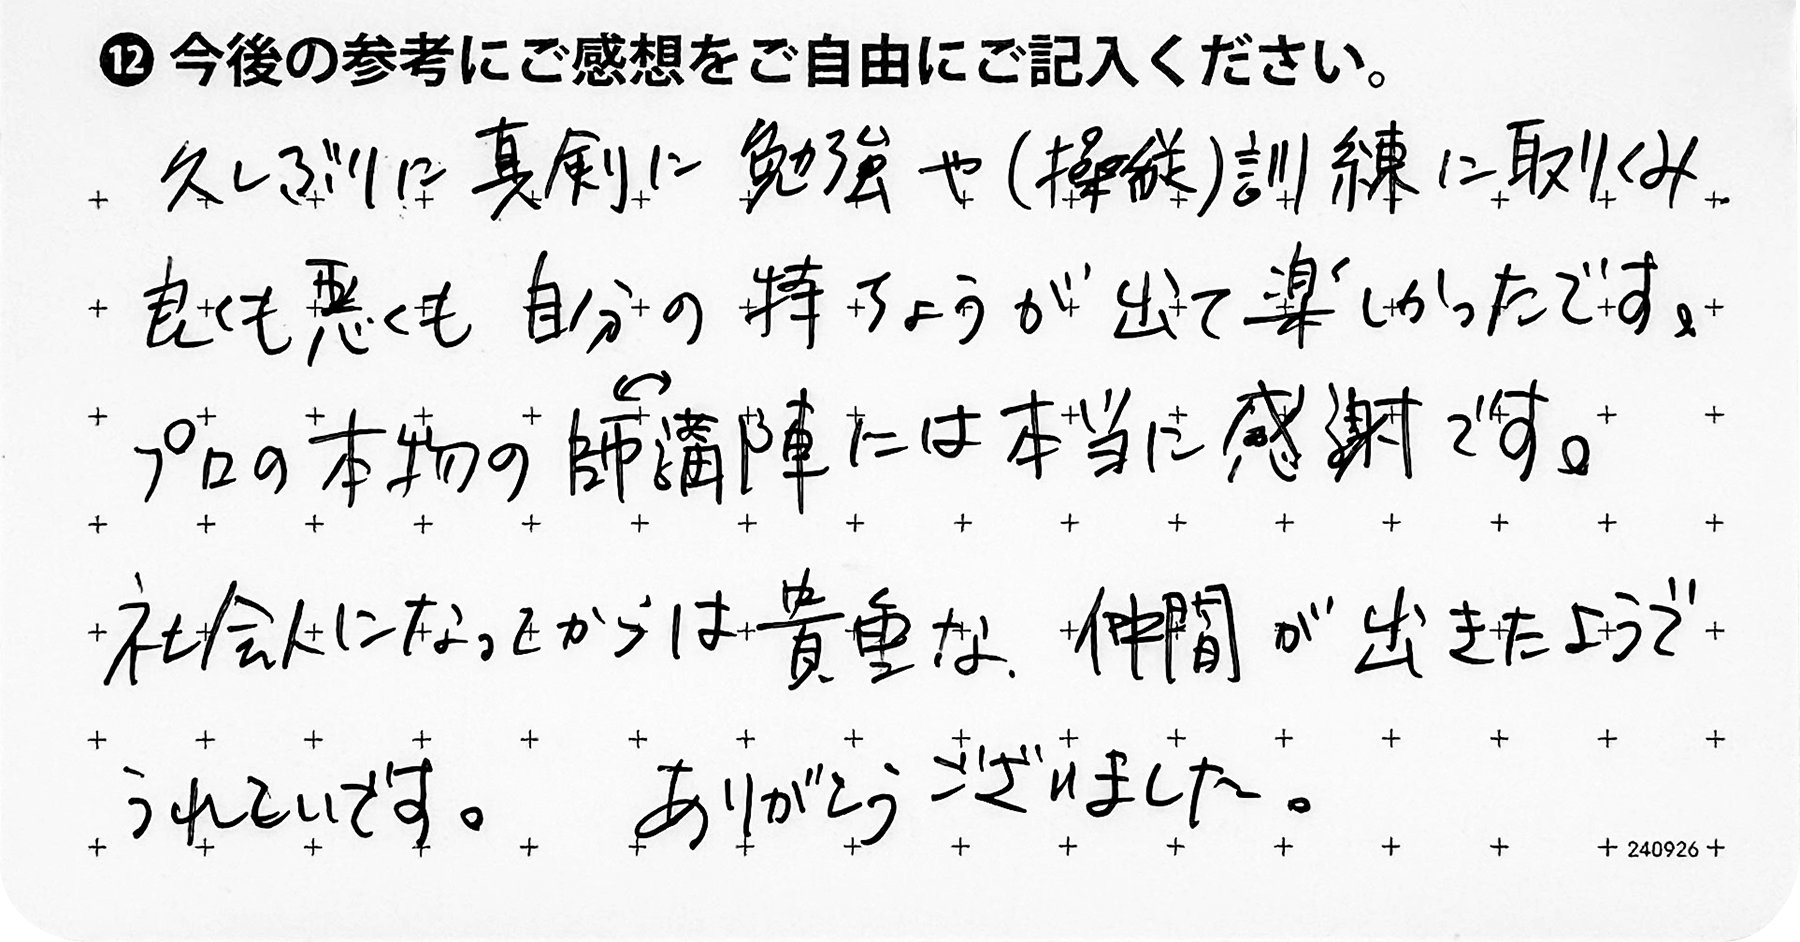 ⓬ 今後の参考にご感想をご自由にご記入ください。
久しぶりに真剣に勉強や(操縦)訓練に取りくみ
良くも悪くも自分の持ちようが出て楽しかったです。
プロの本物の師講陣には本当に感謝です。
社会人になってからは貴重な仲間が出きたようで
うれしいです。 ありがとうございました。
240926